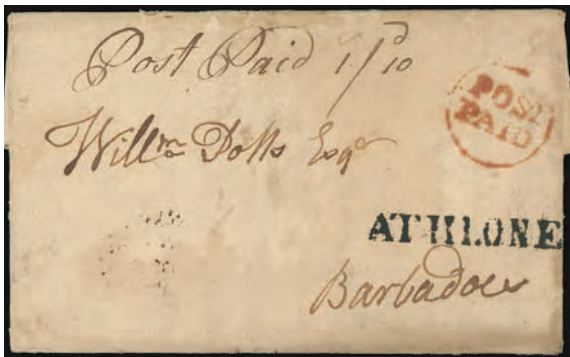 Post Paid 1/10d
POST
PAID
Willm Dotts Esqr
ATHLONE
Barbadoes